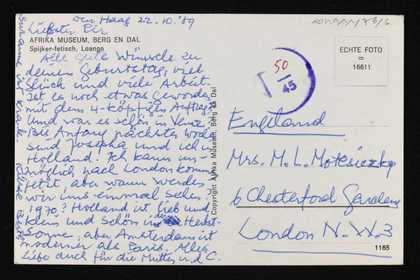 Den Haag 22.10.69
Liebster Pir
AFRIKA MUSEUM, BERG EN DAL
Spijker-fetisch, Loango
Alle gute Wünsche zu
deinem Geburtstag, viel
Glück und viele Arbeit.
Ist es noch etwas geworden
mit dem 4-köpfigen Auftrag
Und war es schön in
Bis Anfang nächster Woche
sind Josepha und ich in
Holland. Ich kann un-
möglich nach London kommen
jetzt, aber wann werden
wir uns einmal sehen
1970? Holland ist lieb und
klein und schön in der Herbst-
Sonne, aber Amsterdam ist
moderner als Paris. Alles
Liebe auch für die Mutter und C.
© Copyright Afrika Museum, Berg en Dal
ECHTE FOTO
16611
T
50
45
England
Mrs. M. L. Motesiczky
6 Chesterford Gardens
London N.W.3
1165